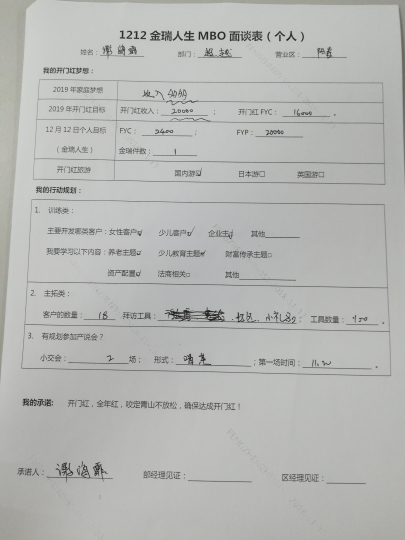 1212 金瑞人生 MBO 面谈表（个人）
姓名： 部门： 营业区：
我的开门红梦想：
2019 年家庭梦想 收入
2019 年开门红目标 开门红收入： 20000 ； 开门红 FYC： 16000 。
12 月 12 日个人目标 FYC： 2400 ； FYP： 20000
（金瑞人生） 金瑞件数： 1
开门红旅游 国内游☑ 日本游□ 英国游□
我的行动规划：
1. 训练类：
主要开发哪类客户：女性客户☑ 少儿客户☑ 企业主☑ 其他
我要学习以下内容：养老主题☑ 少儿教育主题☑ 财富传承主题□
资产配置☑ 法商相关□ 其他
2. 主拓类：
客户的数量： 18 拜访工具： 小礼品 ； 工具数量： 。
3. 有规划参加产说会？
小交会： 2 场； 形式： ；第一场时间： 。
我的承诺: 开门红，全年红，咬定青山不放松，确保达成开门红！
承诺人： 部经理见证： 区经理见证：